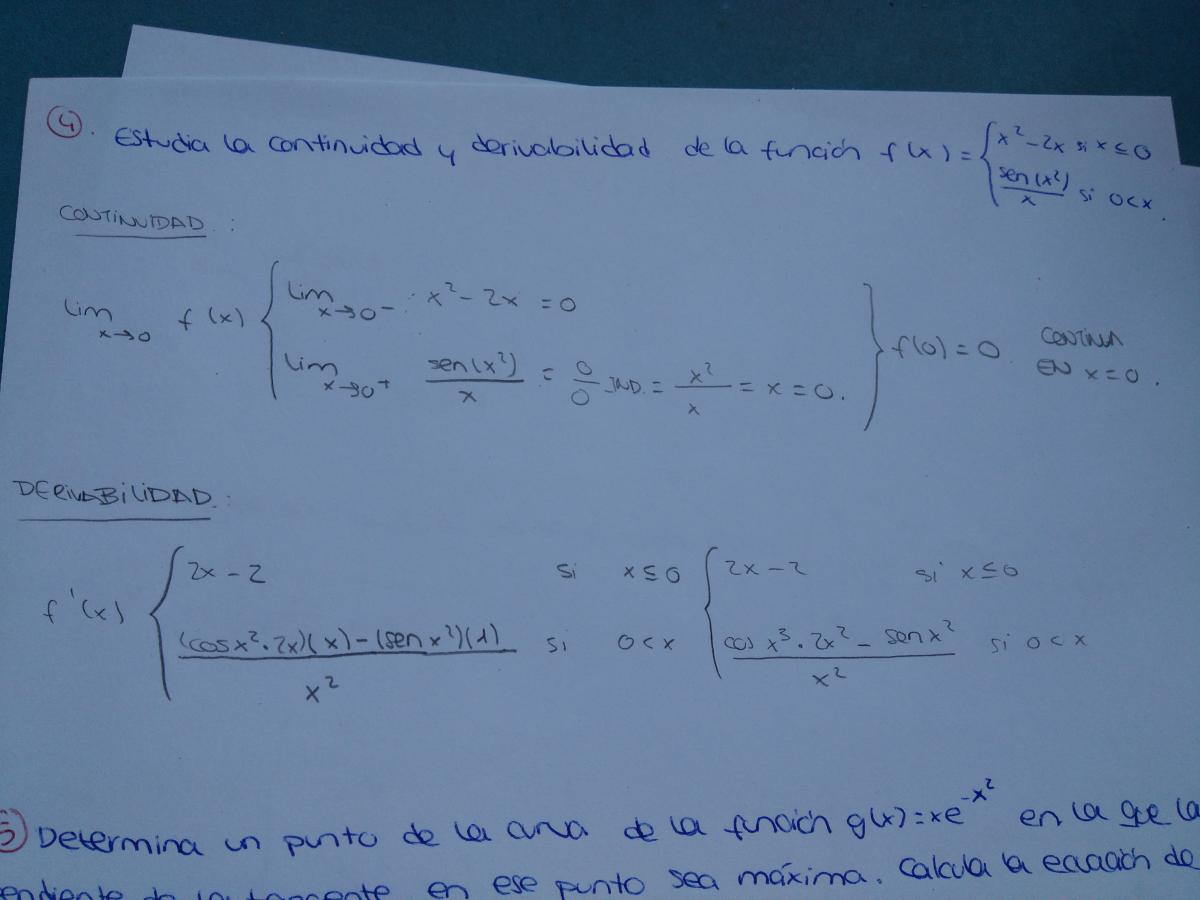 ④. Estudia la continuidad y derivabilidad de la función f(x) = { x² - 2x si x ≤ 0
sen(x²)/x si 0 < x.
CONTINUIDAD :
lim x→0 f(x) { lim x→0⁻ x² - 2x = 0
lim x→0⁺ sen(x²)/x = 0/0 IND. = x²/x = x = 0. } f(0) = 0 CONTINUA EN x = 0.
DERIVABILIDAD :
f'(x) { 2x - 2 si x ≤ 0 { 2x - 2 si x ≤ 0
(cos x² · 2x)(x) - (sen x²)(1) / x² si 0 < x cos x³ · 2x² - sen x² / x² si 0 < x
5) Determina un punto de la curva de la función g(x) = xe^-x² en la que la
en ese punto sea máxima. Calcula la ecuación de